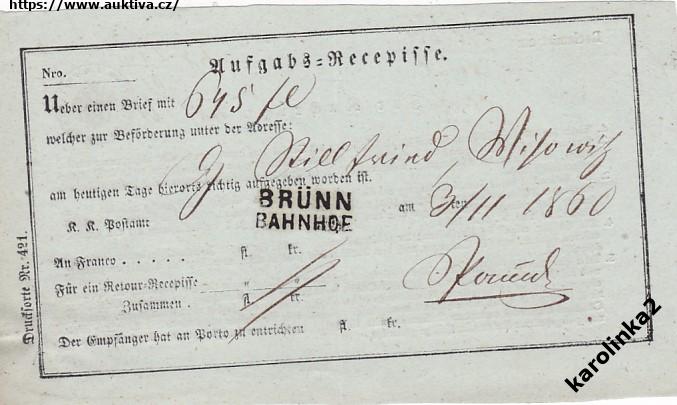 https://www.auktiva.cz/
Aufgabs-Recepisse.
Nro.
Ueber einen Brief mit 645 fl
welcher zur Beförderung unter der Adresse:
Stillfried, Wisowitz
am heutigen Tage hierorts richtig aufgegeben worden ist.
BRÜNN
BAHNHOF
K. K. Postamt am 3/11 ten 1860
An Franco . . . . . fl. kr.
Für ein Retour-Recepisse " "
Zusammen . fl. kr.
Der Empfänger hat an Porto zu entrichten fl. kr.
Drucksorte Nr. 421.
karolinka2